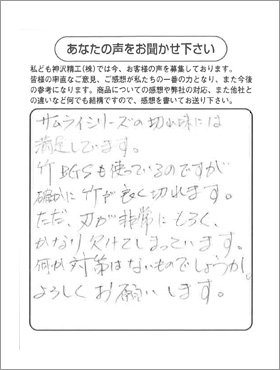 あなたの声をお聞かせ下さい
私ども神沢精工(株)では今、お客様の声を募集しております。
皆様の率直なご意見、ご感想が私たちの一番の力となり、また今後
の参考になります。商品についての感想や弊社の対応、また他社と
の違いなど何でも結構ですので、感想を書いてお送り下さい。
サムライシリーズの切れ味には
満足しています。
竹BGSも使っているのですが
確かに竹が良く切れます。
ただ、刃が非常にもろく、
かなり欠けてしまっています。
何か対策はないものでしょうか。
よろしくお願いします。